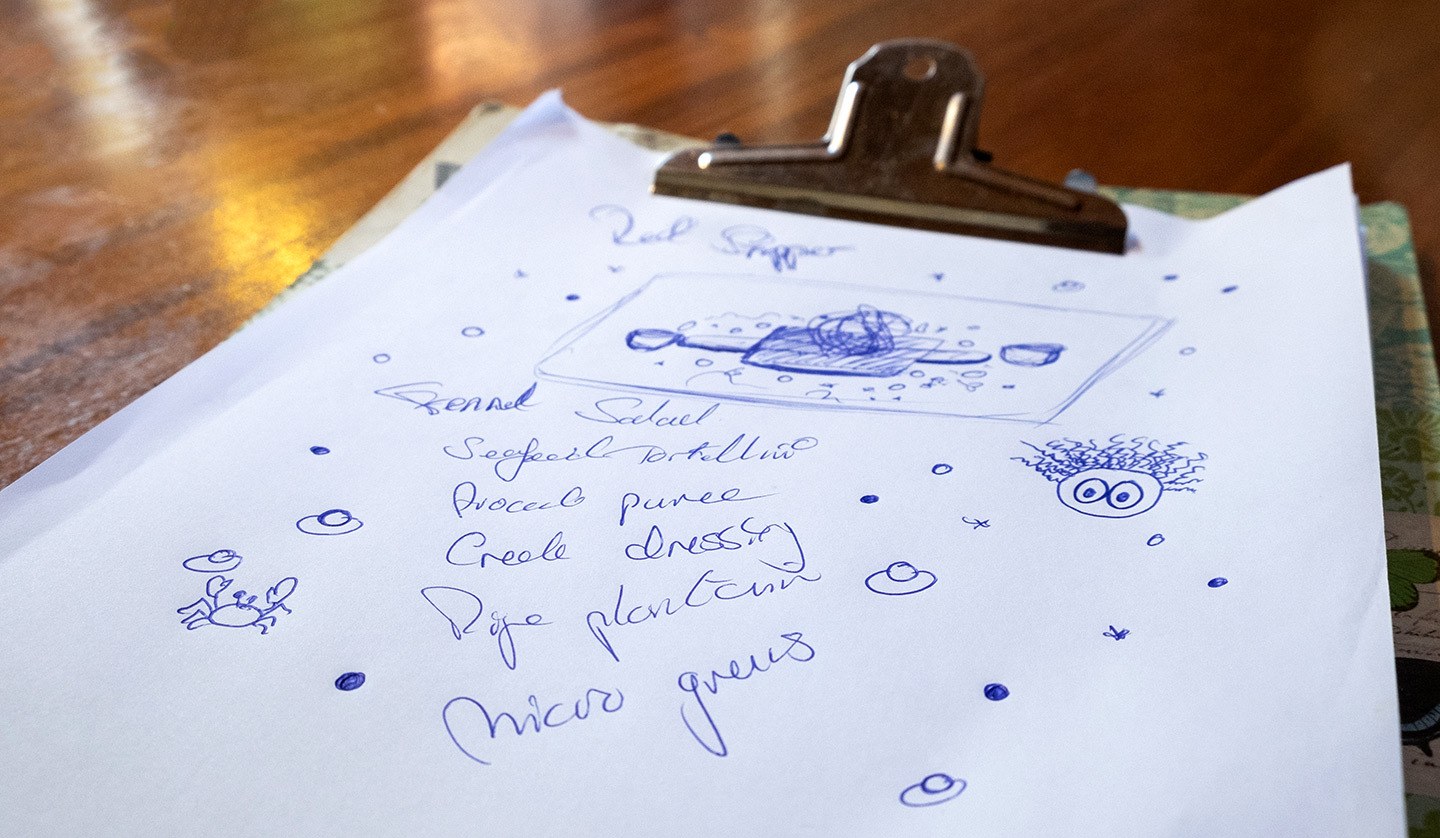 Red Snapper
Fennel Salad
Seafood tortellini
Avocado puree
Creole dressing
Ripe plantain
Micro greens